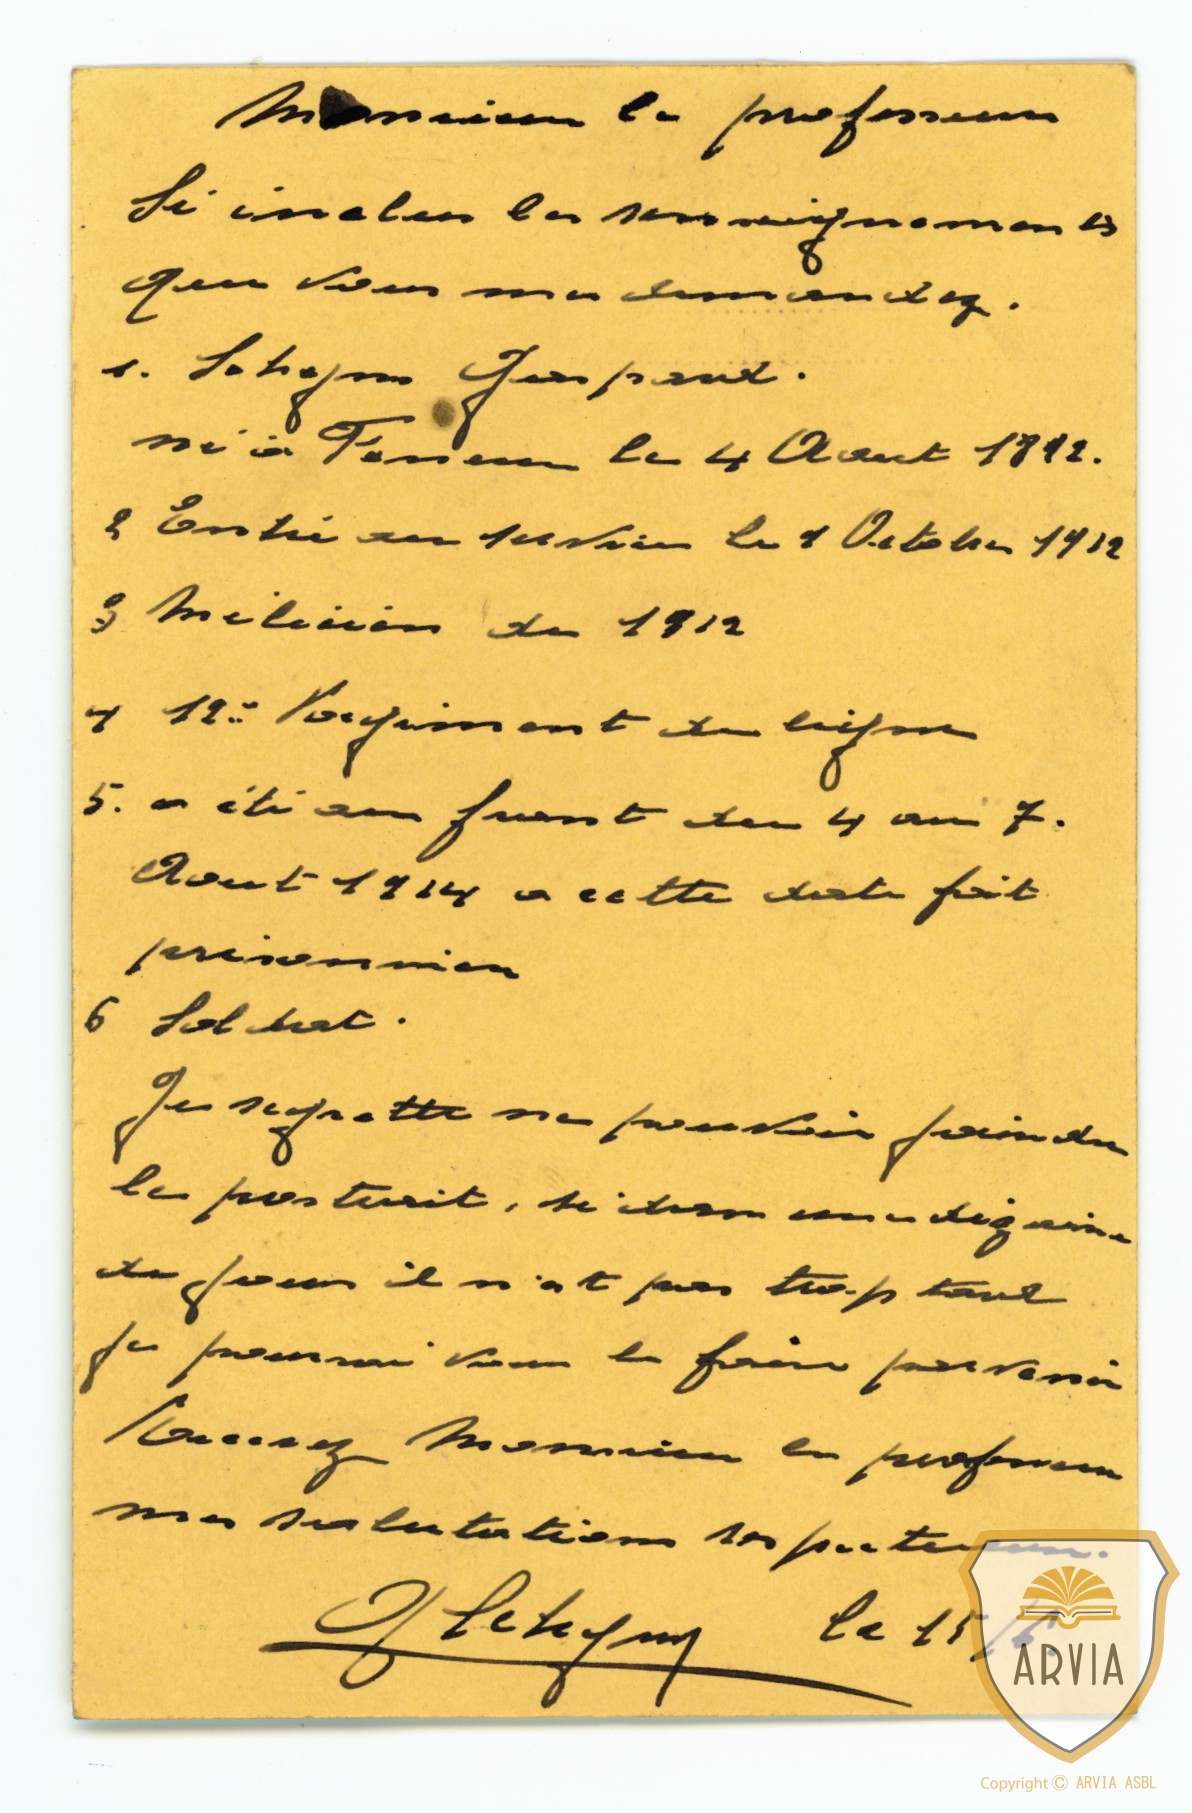 Monsieur le professeur
Si inclus les renseignements
que vous me demandez.
1. Gaspard.
né à le 4 Aout 1892.
2 Entré au service le 1 Octobre 1912
3 Milicien de 1912
4 12e Regiment de ligne
5. a été au front du 4 au 7.
Aout 1914 a cette date fait
prisonnier
6 Soldat.
Je regrette ne pouvoir joindre
le portrait, si dans une dizaine
de jours il n'ai pas trop tard
je pourrai vous le faire parvenir
Recevez Monsieur le professeur
mes salutations respectueuses.
le 15/
ARVIA
Copyright © ARVIA ASBL